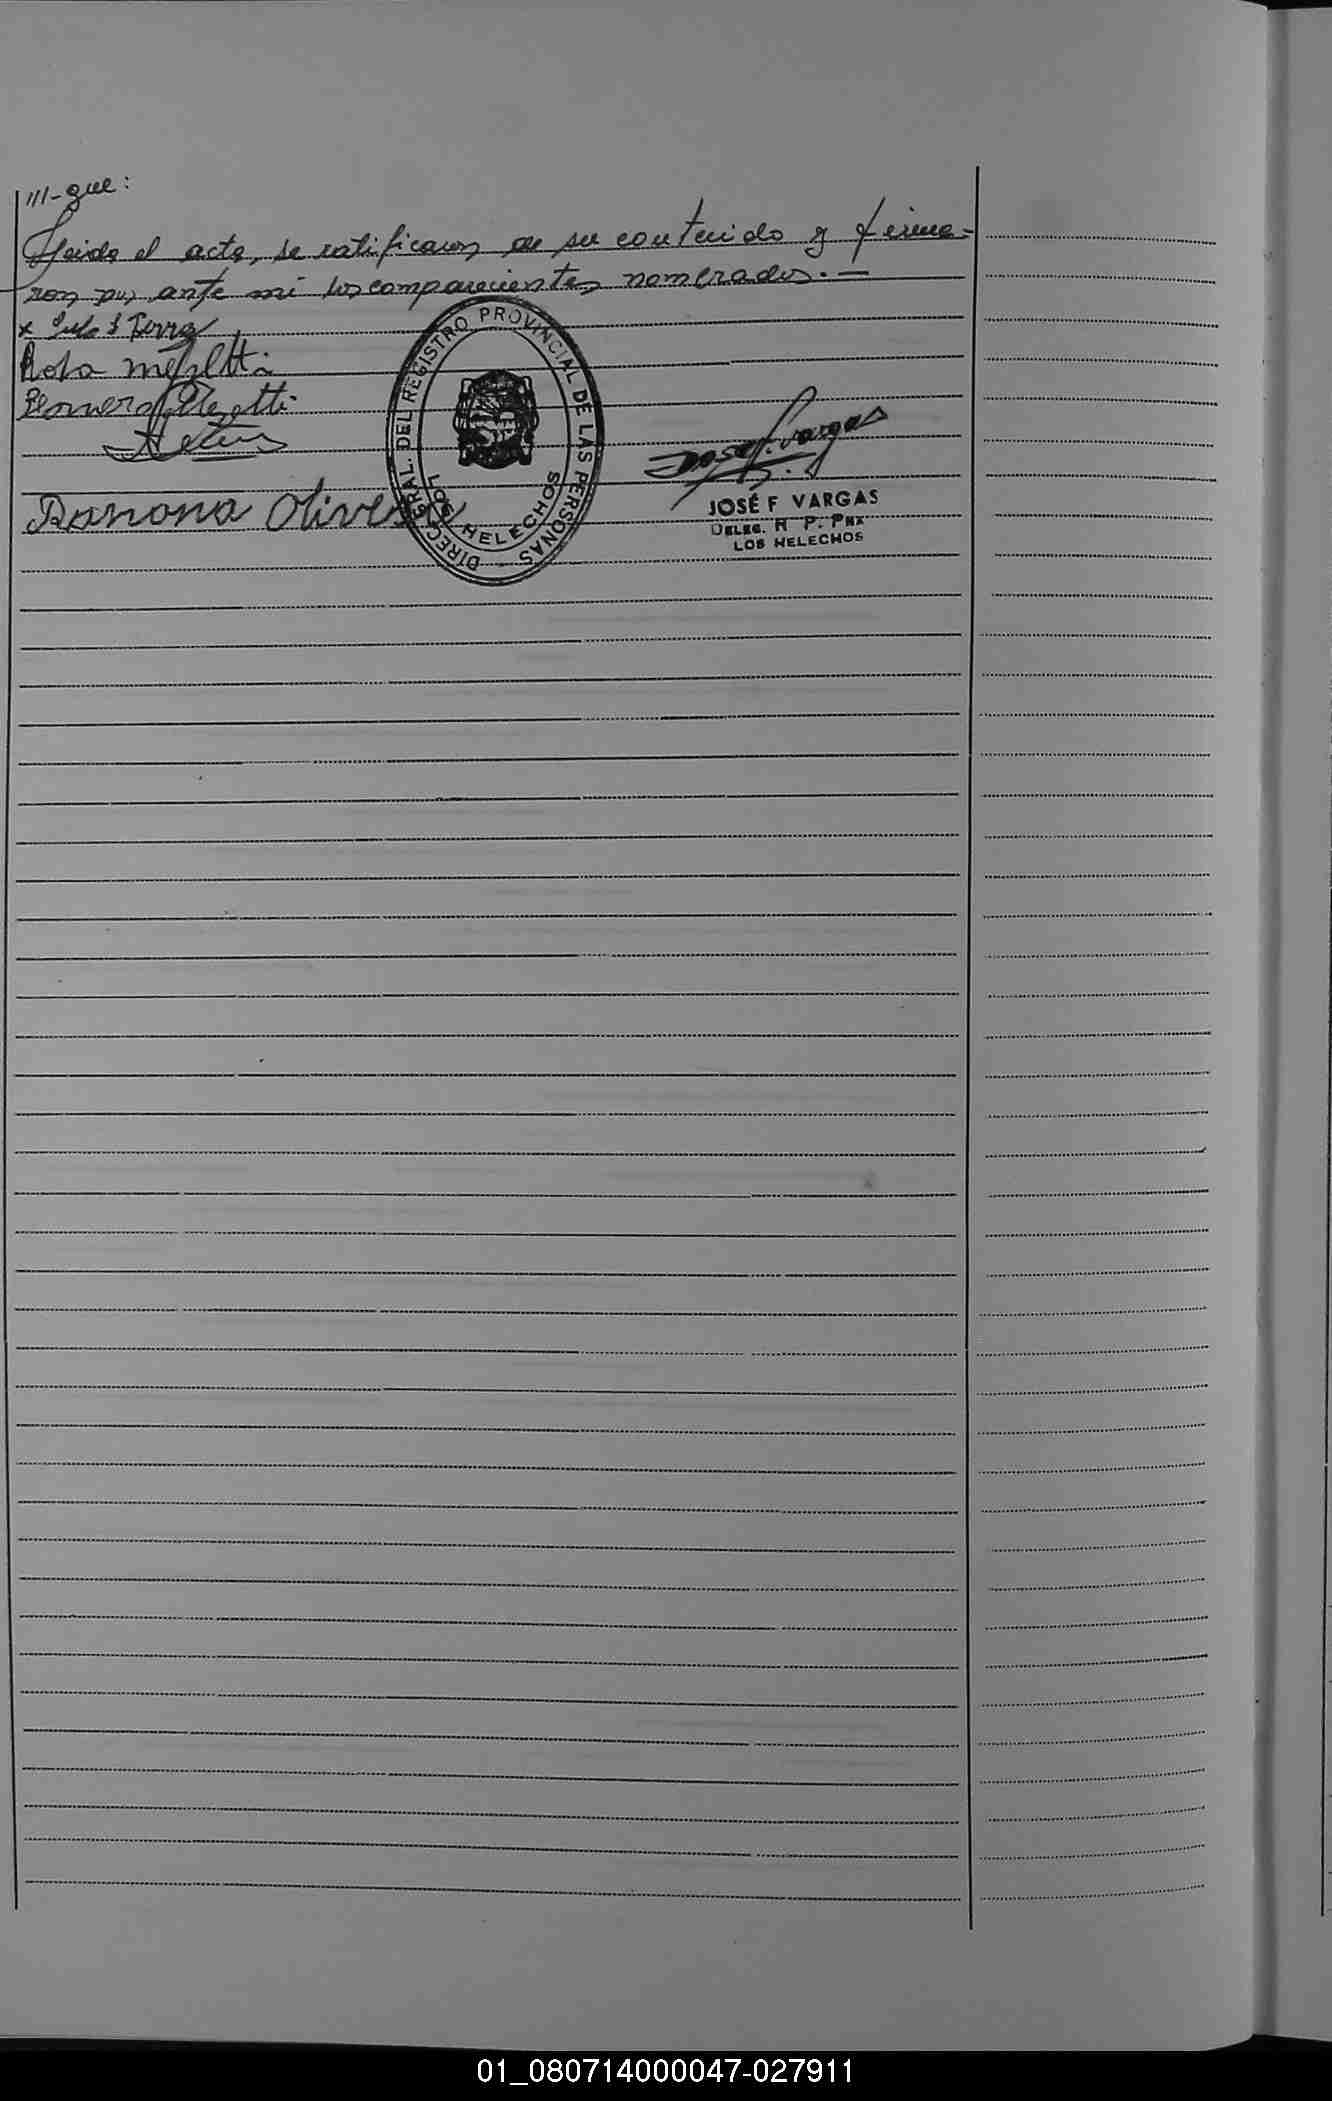 ///-gue:
Leida el acta, se ratificaron en su contenido y firma-
ron por ante mí los comparecientes nombrados.—
x
Rosa
Ramona Olivera
DIREC. GRAL. DEL REGISTRO PROVINCIAL DE LAS PERSONAS
LOS HELECHOS
Jose F. Vargas
JOSÉ F VARGAS
DELEG. R P. PNX
LOS HELECHOS
01_080714000047-027911